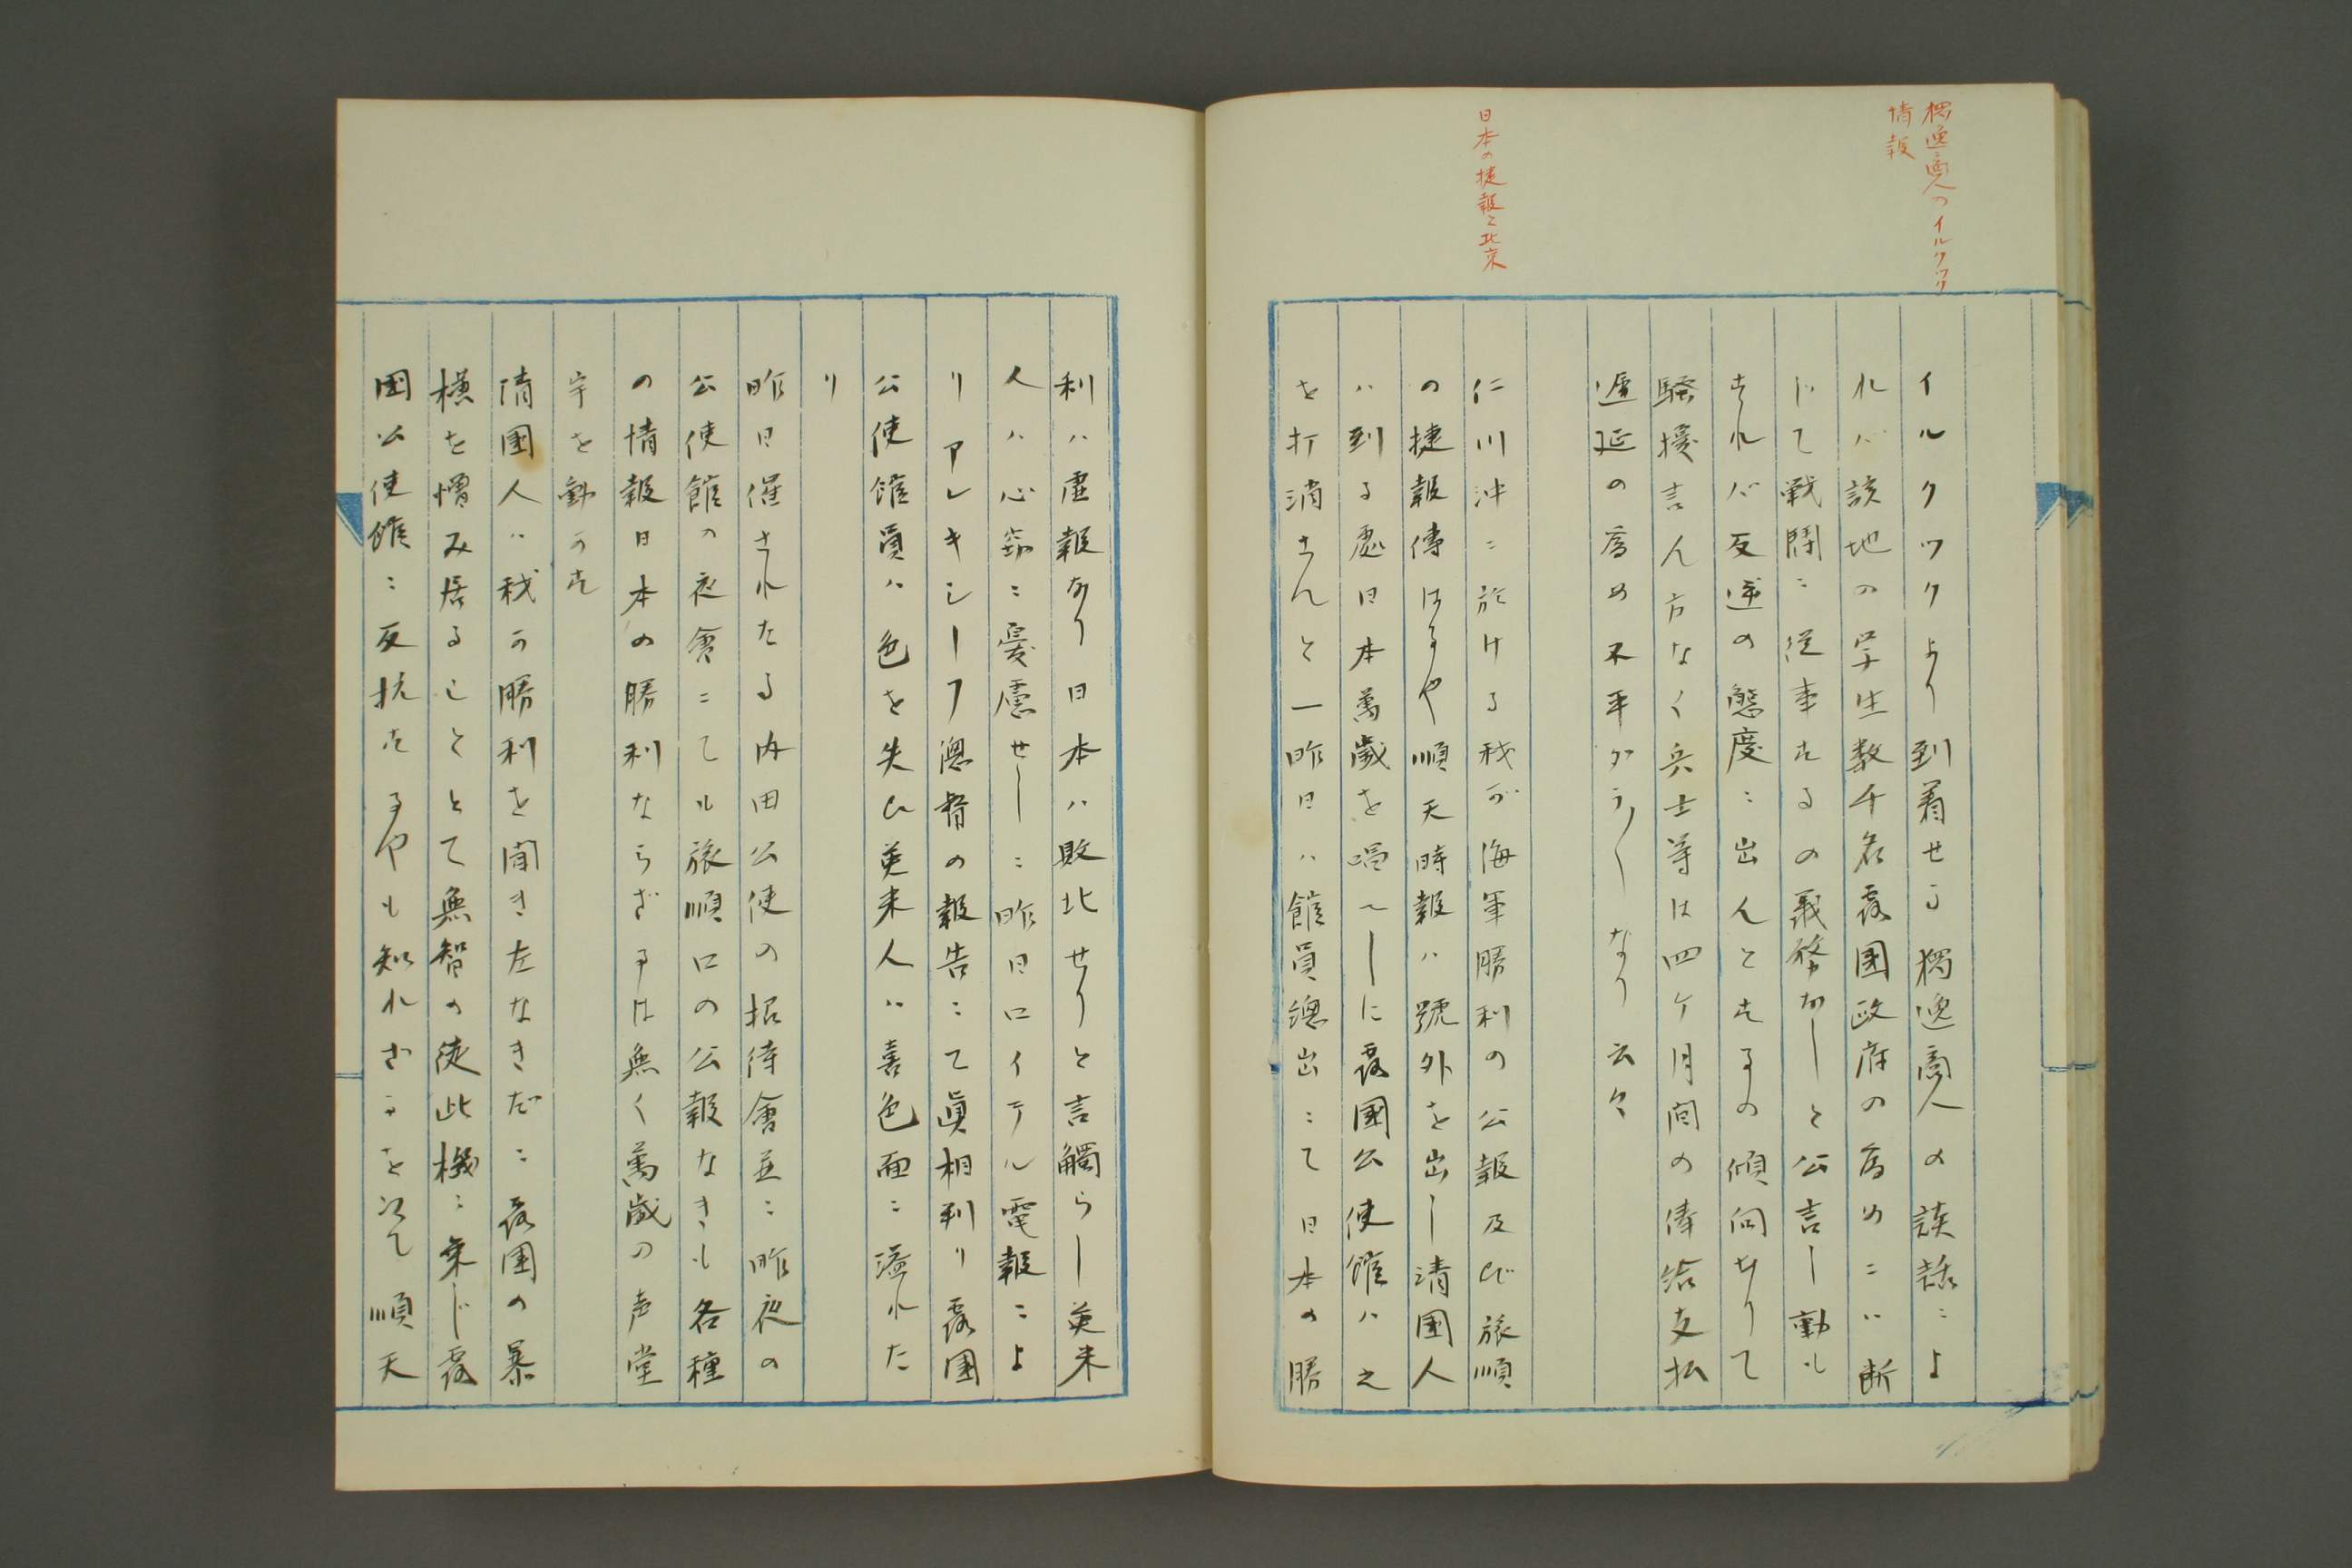 独逸商人のイルクツク
情報
イルクツクより到着せる独逸商人の談話によ
れバ該地の学生数千名露国政府の為めにハ断
じて戦闘に従事するの義務なしと公言し動も
すれバ反逆の態度に出んとするの傾向ありて
騒擾言ん方なく兵士等は四ケ月間の俸給支払
遅延の為め不平タラ〳〵なり云々
日本の捷報と北京
仁川沖に於ける我が海軍勝利の公報及び旅順
の捷報傳はるや順天時報ハ號外を出し清國人
ハ到る處日本萬歳を唱へしに露國公使館ハ之
を打消さんと一昨日ハ館員總出にて日本の勝
利ハ虚報なり日本ハ敗北せりと言觸らし英米
人ハ心窃に憂慮せしに昨日ロイテル電報によ
りアレキシーフ總督の報告にて眞相判り露国
公使館員ハ色を失ひ英米人ハ喜色面に溢れた
り
昨日催されたる内田公使の招待會並に昨夜の
公使館の夜會にても旅順口の公報なきも各種
の情報日本の勝利ならざるは無く萬歳の声堂
宇を動かす
清国人ハ我が勝利を聞き左なきだに露国の暴
横を憎み居ることとて無智の徒此機に乗じ露
国公使館に反抗するやも知れざるを以て順天